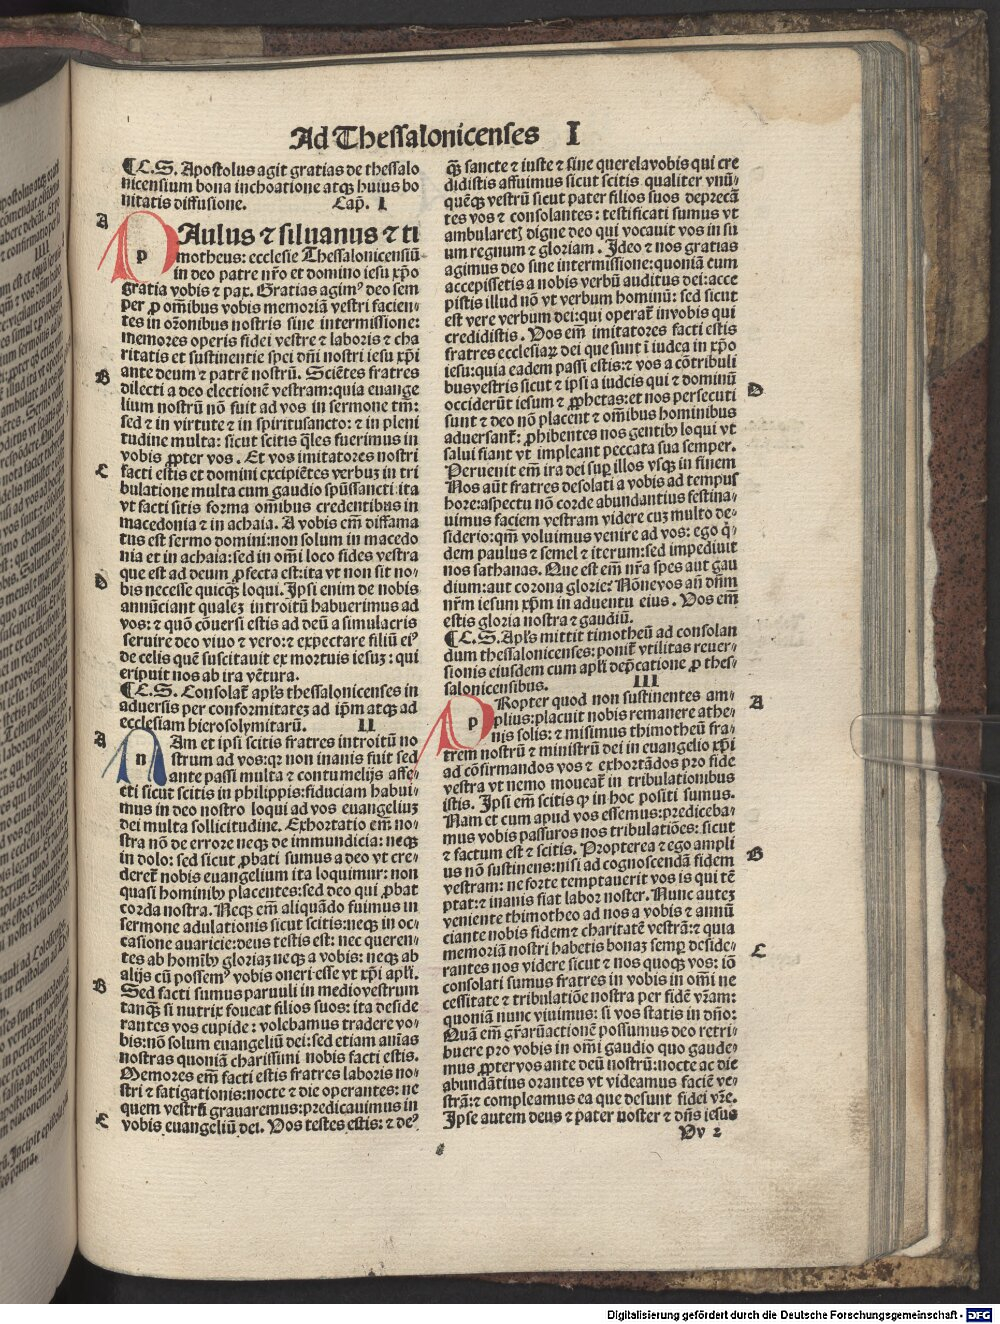 Ad Thessalonicenses I
¶ C.S. Apostolus agit gratias de thessalo
nicensium bona inchoatione atqȝ huius bo
nitatis diffusione. Cap̄. I
A
PAulus ⁊ siluanus ⁊ ti
motheus: ecclesie Thessalonicensiū
in deo patre nr̄o et domino iesu xp̄o
gratia vobis ⁊ pax. Gratias agimꝰ deo sem
per ꝓ om̄ibus vobis memoriā vestri facien⸗
tes in or̄onibus nostris sine intermissione:
memores operis fidei vestre ⁊ laboris ⁊ cha
ritatis et sustinentie spei dn̄i nostri iesu xp̄i
B ante deum ⁊ patrē nostrū. Sciētes fratres
dilecti a deo electionē vestram: quia euange
lium nostrū nō fuit ad vos in sermone tm̄:
sed ⁊ in virtute ⁊ in spiritusancto: ⁊ in pleni
tudine multa: sicut scitis q̄les fuerimus in
vobis ꝓpter vos. Et vos imitatores nostri
C facti estis et domini excipiētes verbuȝ in tri
bulatione multa cum gaudio sp̄ussancti: ita
vt facti sitis forma om̄ibus credentibus in
macedonia ⁊ in achaia. A vobis em̄ diffama
tus est sermo domini: non solum in macedo
nia et in achaia: sed in om̄i loco fides vestra
que est ad deum ꝓfecta est: ita vt non sit no⸗
D bis necesse quicq̄ȝ loqui. Ipsi enim de nobis
annūciant qualeȝ introitū habuerimus ad
vos: ⁊ quō cōuersi estis ad deū a simulacris
seruire deo viuo ⁊ vero: ⁊ expectare filiū eiꝰ
de celis quē suscitauit ex mortuis iesuȝ: qui
eripuit nos ab ira vētura.
¶ C.S. Consolat̄ apl̄s thessalonicenses in
aduersis per conformitateȝ ad ip̄m atqȝ ad
ecclesiam hierosolymitarū. II
A
nAm et ipsi scitis fratres introitū no
strum ad vos: qꝛ non inanis fuit sed
ante passi multa ⁊ contumelijs affe⸗
cti sicut scitis in philippis: fiduciam habui⸗
mus in deo nostro loqui ad vos euangeliuȝ
dei multa sollicitudine. Exhortatio em̄ no⸗
stra nō de errore neqȝ de immundicia: neqȝ
in dolo: sed sicut ꝓbati sumus a deo vt cre⸗
deret̄ nobis euangelium ita loquimur: non
quasi hominibꝰ placentes: sed deo qui ꝓbat
corda nostra. Neqȝ em̄ aliquādo fuimus in
sermone adulationis sicut scitis: neqȝ in oc⸗
casione auaricie: deus testis est: nec queren⸗
tes ab homībꝰ gloriaȝ neqȝ a vobis: neqȝ ab
alijs cū possemꝰ vobis oneri esse vt xp̄i apl̄i.
B Sed facti sumus paruuli in medio vestrum
tanq̄ȝ si nutrix foueat filios suos: ita deside
rantes vos cupide: volebamus tradere vo⸗
bis: nō solum euangeliū dei: sed etiam aīas
nostras quoniā charissimi nobis facti estis.
Memores em̄ facti estis fratres laboris no⸗
stri ⁊ fatigationis: nocte ⁊ die operantes: ne
quem vestrū grauaremus: predicauimus in
C vobis euangeliū dei. Vos testes estis: ⁊ deꝰ
q̄ȝ sancte ⁊ iuste ⁊ sine querela vobis qui cre
didistis affuimus sicut scitis qualiter vnū⸗
quēqȝ vestrū sicut pater filios suos deprecā
tes vos ⁊ consolantes: testificati sumus vt
ambularetȝ digne deo qui vocauit vos in su
um regnum ⁊ gloriam. Ideo ⁊ nos gratias
agimus deo sine intermissione: quoniā cum
accepissetis a nobis verbū auditus dei: acce
pistis illud nō vt verbum hominū: sed sicut
est vere verbum dei: qui operat̄ in vobis qui
credidistis. Vos em̄ imitatores facti estis
fratres ecclesiaꝝ dei que sunt ī iudea in xp̄o
iesu: quia eadem passi estis: ⁊ vos a cōtribuli
D busvestris sicut ⁊ ipsi a iudeis qui ⁊ dominū
occiderūt iesum ⁊ ꝓphetas: et nos persecuti
sunt ⁊ deo nō placent ⁊ om̄ibus hominibus
aduersant̄: ꝓhibentes nos gentibꝰ loqui vt
salui fiant vt impleant peccata sua semper.
Peruenit em̄ ira dei suꝑ illos vsqȝ in finem
Nos aūt fratres desolati a vobis ad tempus
hore: aspectu nō corde abundantius festina⸗
uimus faciem vestram videre cuȝ multo de⸗
siderio: qm̄ voluimus venire ad vos: ego q̄⸗
dem paulus ⁊ semel ⁊ iterum: sed impediuit
nos sathanas. Que est em̄ nr̄a spes aut gau
dium: aut corona glorie? Nōne vos an̄ dn̄m
nr̄m iesum xp̄m in aduentu eius. Vos em̄
estis gloria nostra ⁊ gaudiū.
¶ C.S. Apl̄s mittit timotheū ad consolan
dum thessalonicenses: ponit̄ vtilitas reuer⸗
sionis eiusdem cum apl̄i dep̄catione ꝓ thes⸗
salonicensibus. III
A
pRopter quod non sustinentes am⸗
plius: placuit nobis remanere athe⸗
nis solis: ⁊ misimus thimotheū fra⸗
trem nostrū ⁊ ministrū dei in euangelio xp̄i
ad cōfirmandos vos ⁊ exhortādos pro fide
vestra vt nemo moueat̄ in tribulationibus
istis. Ipsi em̄ scitis ꝙ in hoc positi sumus.
Nam et cum apud vos essemus: prediceba⸗
mus vobis passuros nos tribulatiōes: sicut
B ⁊ factum est ⁊ scitis. Propterea ⁊ ego ampli
us nō sustinens: misi ad cognoscendā fidem
vestram: ne forte temptauerit vos is qui tē
ptat: ⁊ inanis fiat labor noster. Nunc auteȝ
veniente thimotheo ad nos a vobis ⁊ annū
ciante nobis fidem ⁊ charitatē vestrā: ⁊ quia
memoriā nostri habetis bonaȝ semꝑ deside⸗
C rantes nos videre sicut ⁊ nos quoqȝ vos: iō
consolati sumus fratres in vobis in om̄i ne
cessitate ⁊ tribulatiōe nostra per fidē vr̄am:
quoniā nunc viuimus: si vos statis in dn̄o:
Quā em̄ gr̄arū actionē possumus deo retri⸗
buere pro vobis in om̄i gaudio quo gaude⸗
mus ꝓpter vos ante deū nostrū: nocte ac die
abundātius orantes vt videamus faciē ve⸗
strā: ⁊ compleamus ea que desunt fidei vr̄e.
Ipse autem deus ⁊ pater noster ⁊ dn̄s iesus
Vv 2
Digitalisierung gefördert durch die Deutsche Forschungsgemeinschaft - DFG